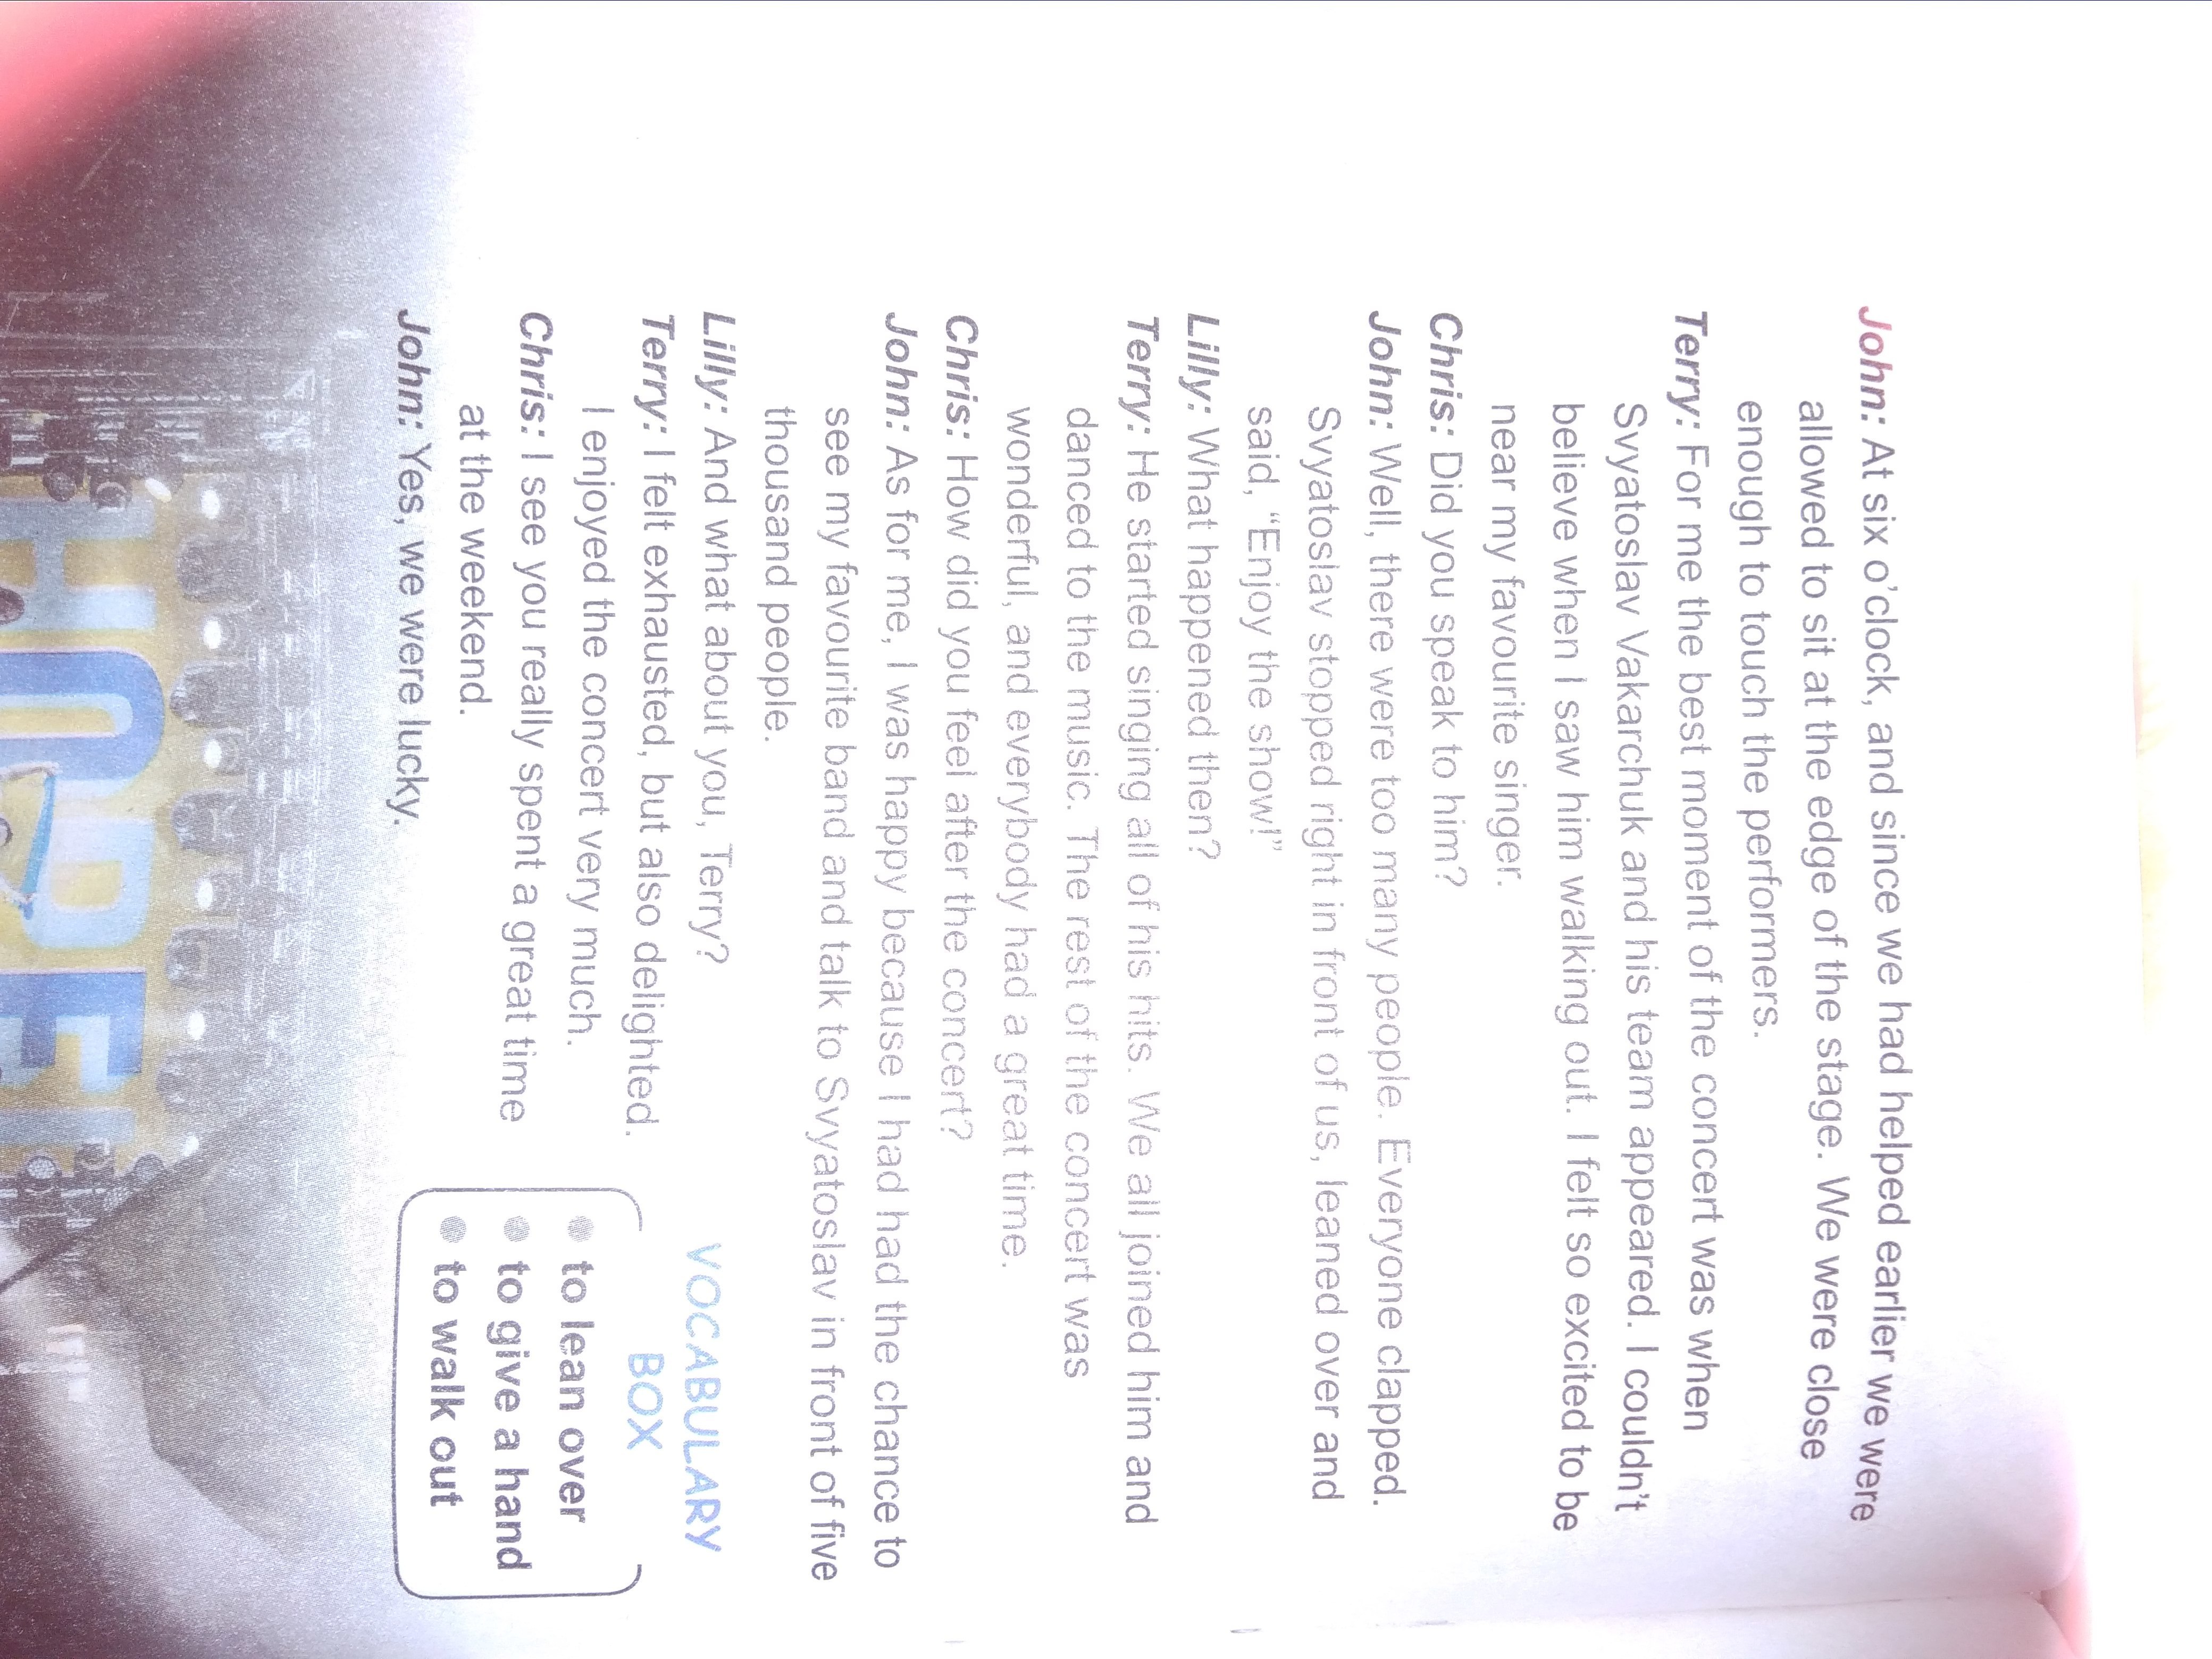 John: At six o'clock, and since we had helped earlier we were
allowed to sit at the edge of the stage. We were close
enough to touch the performers.
Terry: For me the best moment of the concert was when
Svyatoslav Vakarchuk and his team appeared. I couldn't
believe when I saw him walking out. I felt so excited to be
near my favourite singer.
Chris: Did you speak to him?
John: Well, there were too many people. Everyone clapped.
Svyatoslav stopped right in front of us, leaned over and
said, “Enjoy the show!”
Lilly: What happened then?
Terry: He started singing all of his hits. We all joined him and
danced to the music. The rest of the concert was
wonderful, and everybody had a great time.
Chris: How did you feel after the concert?
John: As for me, I was happy because I had had the chance to
see my favourite band and talk to Svyatoslav in front of five
thousand people.
Lilly: And what about you, Terry?
Terry: I felt exhausted, but also delighted.
I enjoyed the concert very much.
Chris: I see you really spent a great time
at the weekend.
John: Yes, we were lucky.
VOCABULARY
BOX
to lean over
to give a hand
to walk out